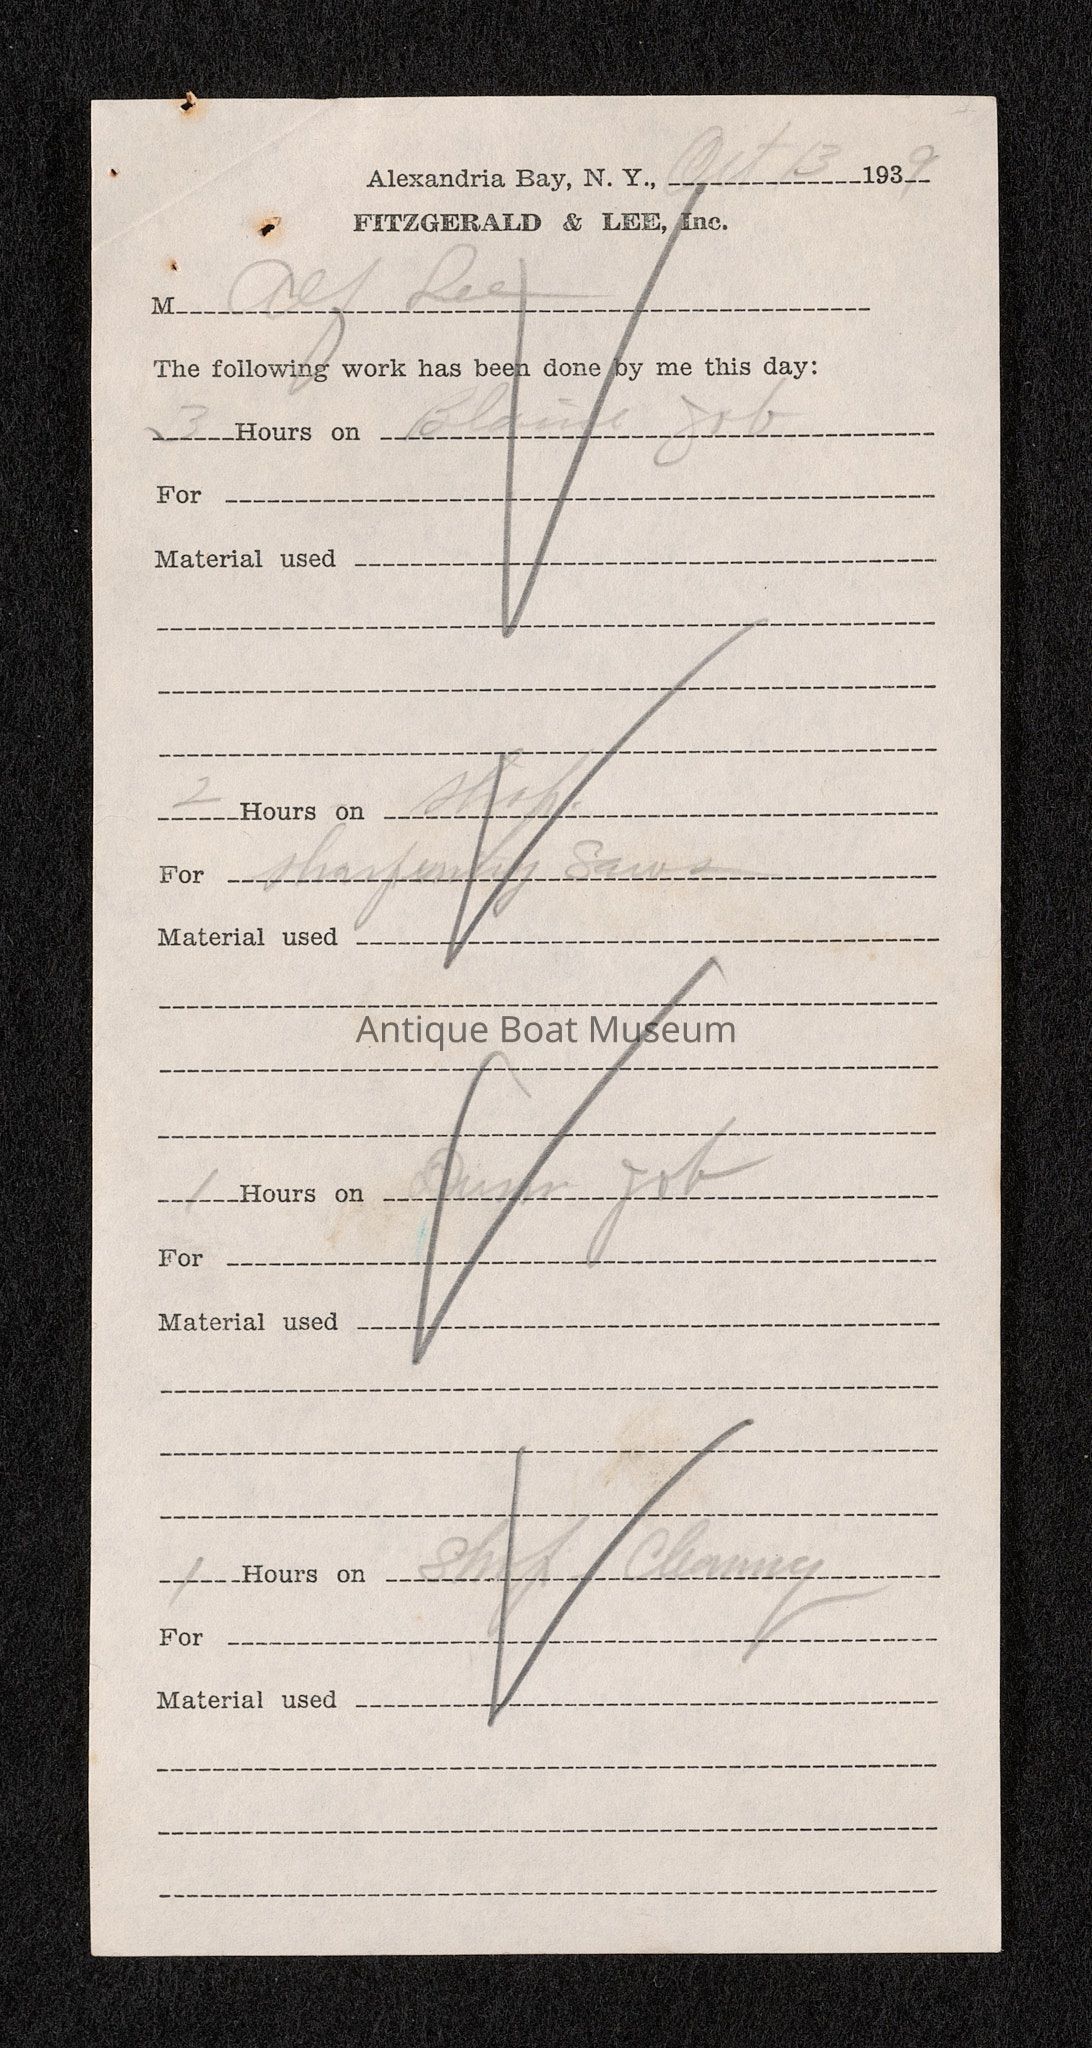 Alexandria Bay, N. Y., Oct 13 1939
FITZGERALD & LEE, Inc.
M Alf Lee
The following work has been done by me this day:
3 Hours on Blaine Job
For
Material used
2 Hours on Shop.
For sharpening Saws
Material used
Antique Boat Museum
1 Hours on Dunn Job
For
Material used
1 Hours on Shop Cleaning
For
Material used